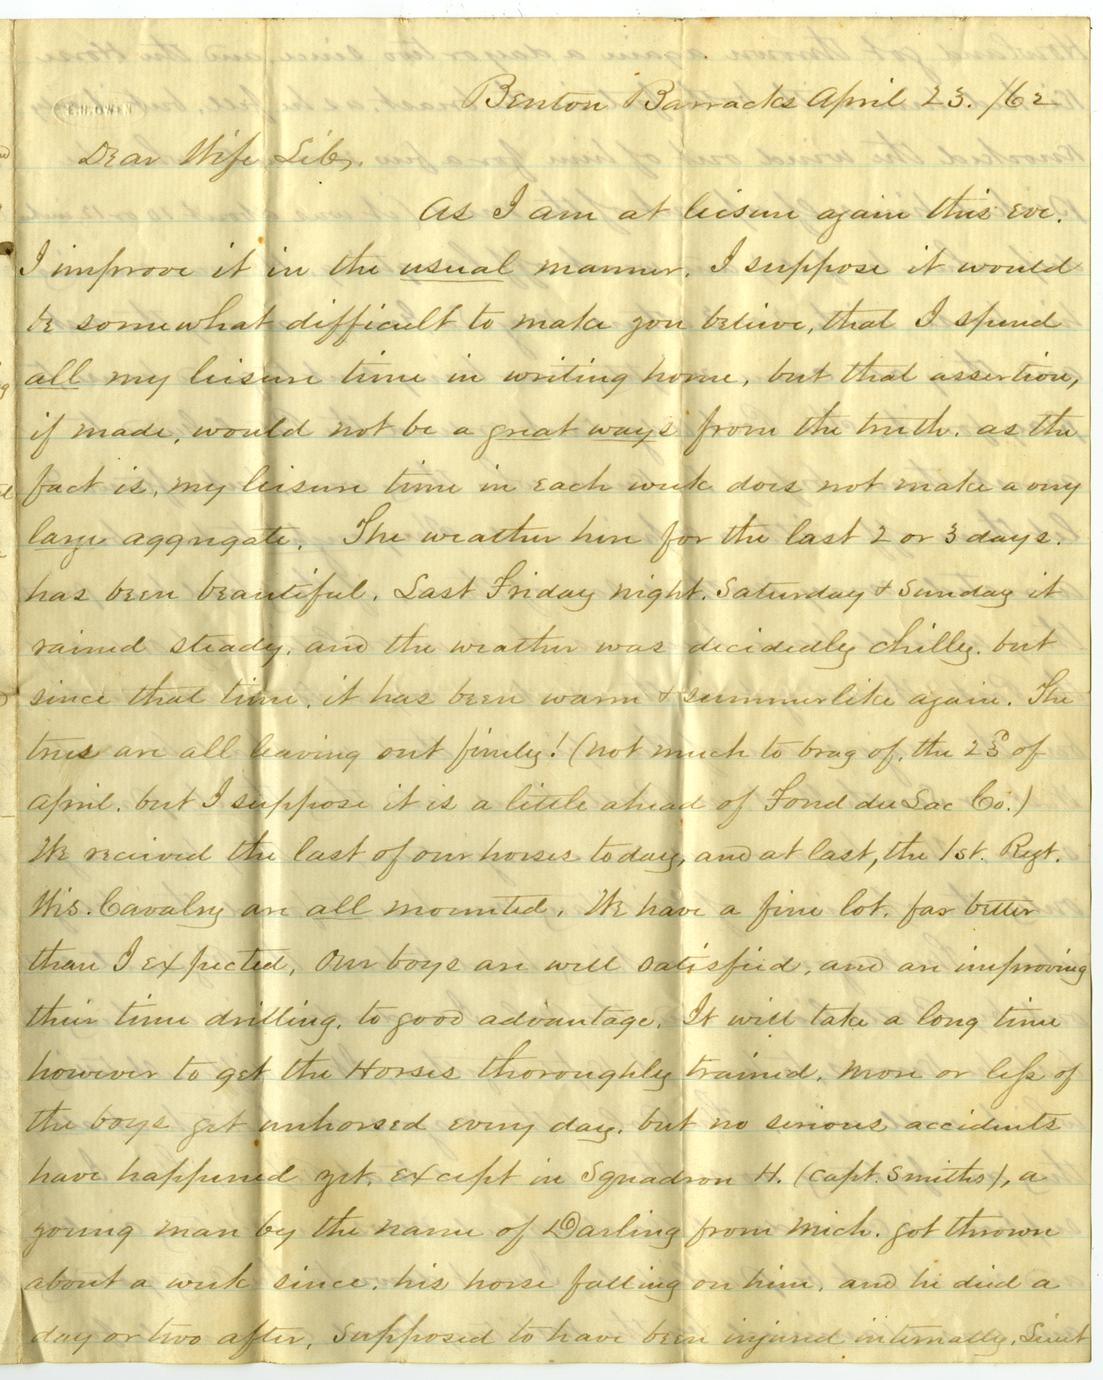 E.H. OWEN
Benton Barracks April 23. /62
Dear Wife, Lib,
As I am at leisure again this eve.
I improve it in the usual manner. I suppose it would
be somewhat difficult to make you believe, that I spend
all my leisure time in writing home, but that assertion,
if made, would not be a great ways from the truth. as the
fact is, my leisure time in each week does not make a very
large aggregate. The weather here for the last 2 or 3 days.
has been beautiful. Last Friday night. Saturday & Sunday it
rained steady. and the weather was decidedly chilly. but
since that time, it has been warm & summerlike again. The
trees are all leaving out finely! (not much to brag of, the 23d of
April. but I suppose it is a little ahead of Fond du Lac Co.)
We received the last of our horses today, and at last, the 1st. Regt.
Wis. Cavalry are all mounted. We have a fine lot. far better
than I expected, Our boys are well satisfied, and are improving
their time drilling. to good advantage. It will take a long time
however to get the Horses thoroughly trained. More or less of
the boys get unhorsed every day. but no serious accidents
have happened yet. except in Squadron H. (Capt. Smiths), a
young man by the name of Darling from Mich. got thrown
about a week since. his horse falling on him. and he died a
day or two after, supposed to have been injured internally. Lieut